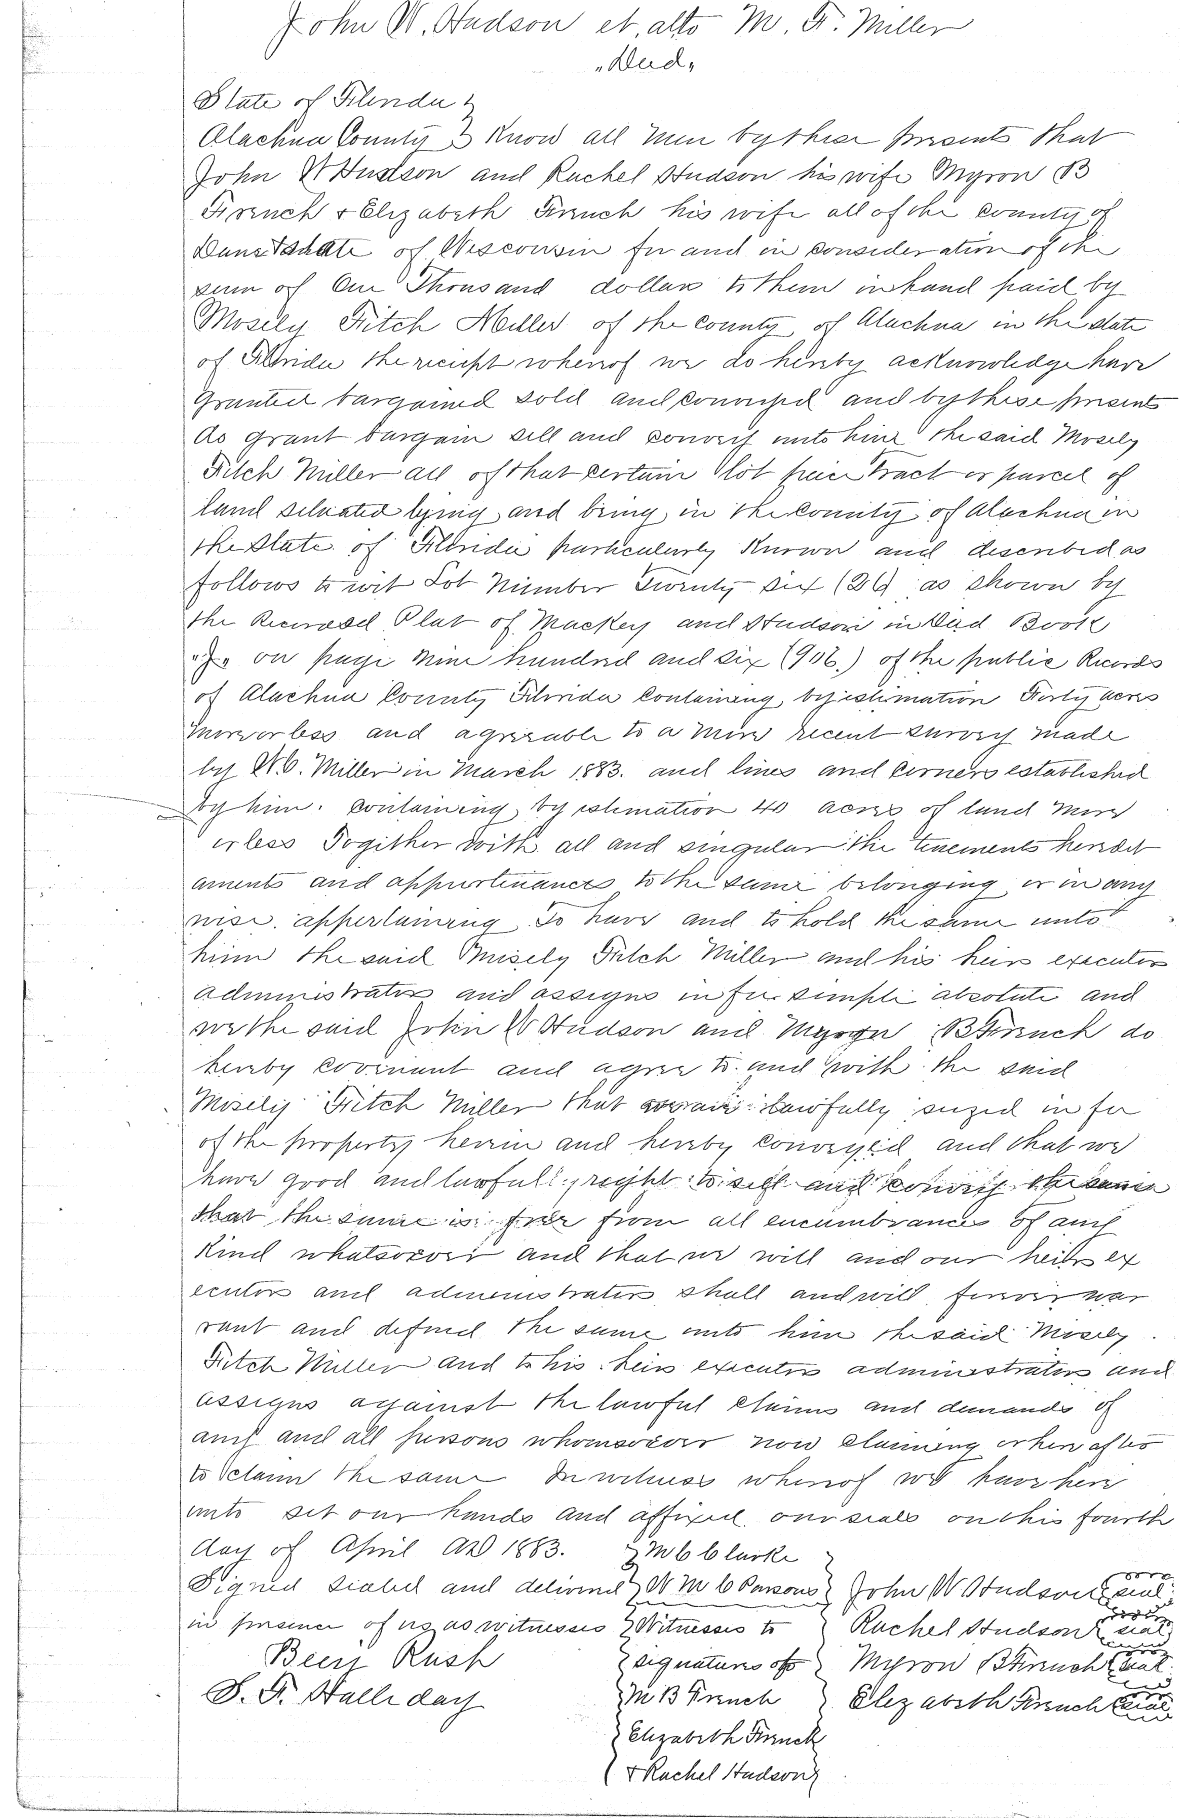 John W. Hudson et, al to M. F. Miller
"Deed"
State of Florida
Alachua County Know all Men by these presents that
John W Hudson and Rachel Hudson his wife Myron B
French & Elizabeth French his wife all of the County of
Dane State of Wisconsin for and in consideration of the
sum of One Thousand dollars to them in hand paid by
Mosely Fitch Miller of the County of Alachua in the state
of Florida the reciept whereof we do hereby acknowledge have
Granted bargained sold and conveyed and by these presents
do grant bargain sell and convey unto him the said Mosely
Fitch Miller all of that certain lot peice tract or parcel of
land situated lying and being in the County of Alachua in
the State of Florida particularly Known and described as
follows to wit Lot Number Twenty six (26) as shown by
the Recorded Plat of Mackey and Hudson in Deed Book
on page Nine hundred and six (906.) of the public Records
of Alachua County Florida Containing by estimation Forty acres
more or less and agreeable to a more recent survey made
by Miller in March 1883. and lines and Corners established
by him. containing by estimation 40 acres of land more
or less Together with all and singular the tenements heredit
aments and appurtenances to the same belonging or in any
wise. appertaining To have and to hold the same unto
him the said Mosely Fitch Miller and his heirs executors
administrators and assigns in fee simple absolute and
we the said John W Hudson and Myron B French do
hereby covenant and agree to and with the said
Mosely Fitch Miller that we are lawfully siezed in fee
of the property herein and hereby conveyed and that we
have good and lawful right to sell and convey the same
that the same is free from all encumbrances of any
Kind whatsoever and that we will and our heirs ex
ecutors and administrators shall and will forever war
rant and defend the same unto him the said Mosely
Fitch Miller and to his heirs executors administrators and
assigns against the lawful claims and demands of
any and all persons whomsoever now claiming or here after
to claim the same In witness whereof we have here
unto set our hands and affixed our seals on this fourth
day of April AD 1883. M C Clarke
Signed sealed and delivered W M C Parsons John W Hudson seal
in presence of us as witnesses Witnesses to Rachel Hudson seal
Rush signatures of Myron B French seal
S. F. Halliday M B French Elizabeth French seal
Elizabeth French
& Rachel Hudson